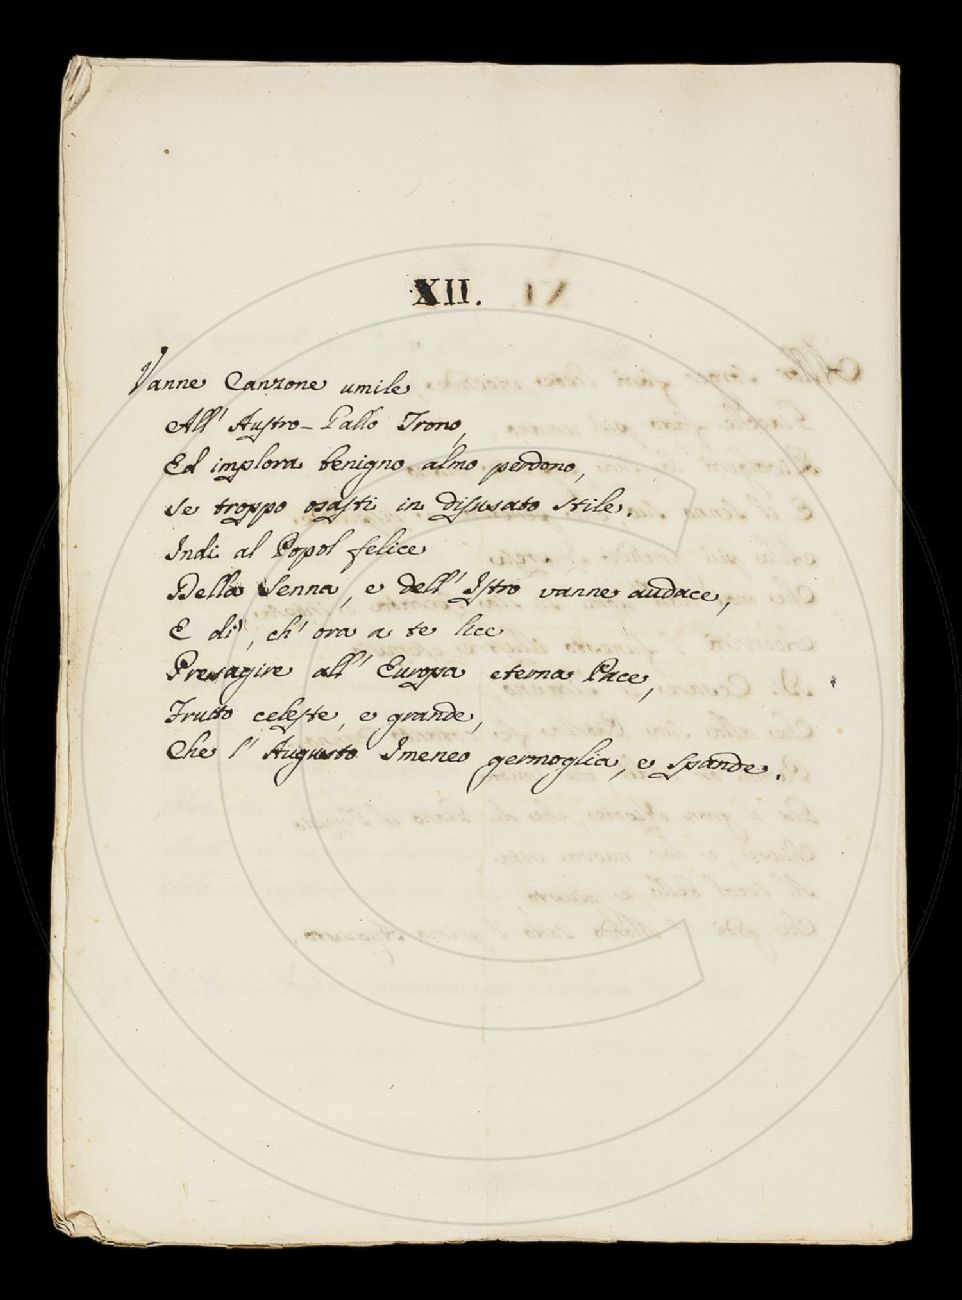 XII.
Vanne Canzone umile
All' Austro-Gallo Trono,
Ed implora benigno almo perdono,
Se troppo osasti in disusato stile.
Indi al Popol felice
Della Senna, e dell' Istro vanne audace,
E di', ch' ora a te lice
Presagire all' Europa eterna Pace,
Frutto celeste, e grande,
Che l' Augusto Imeneo germoglia, e spande.